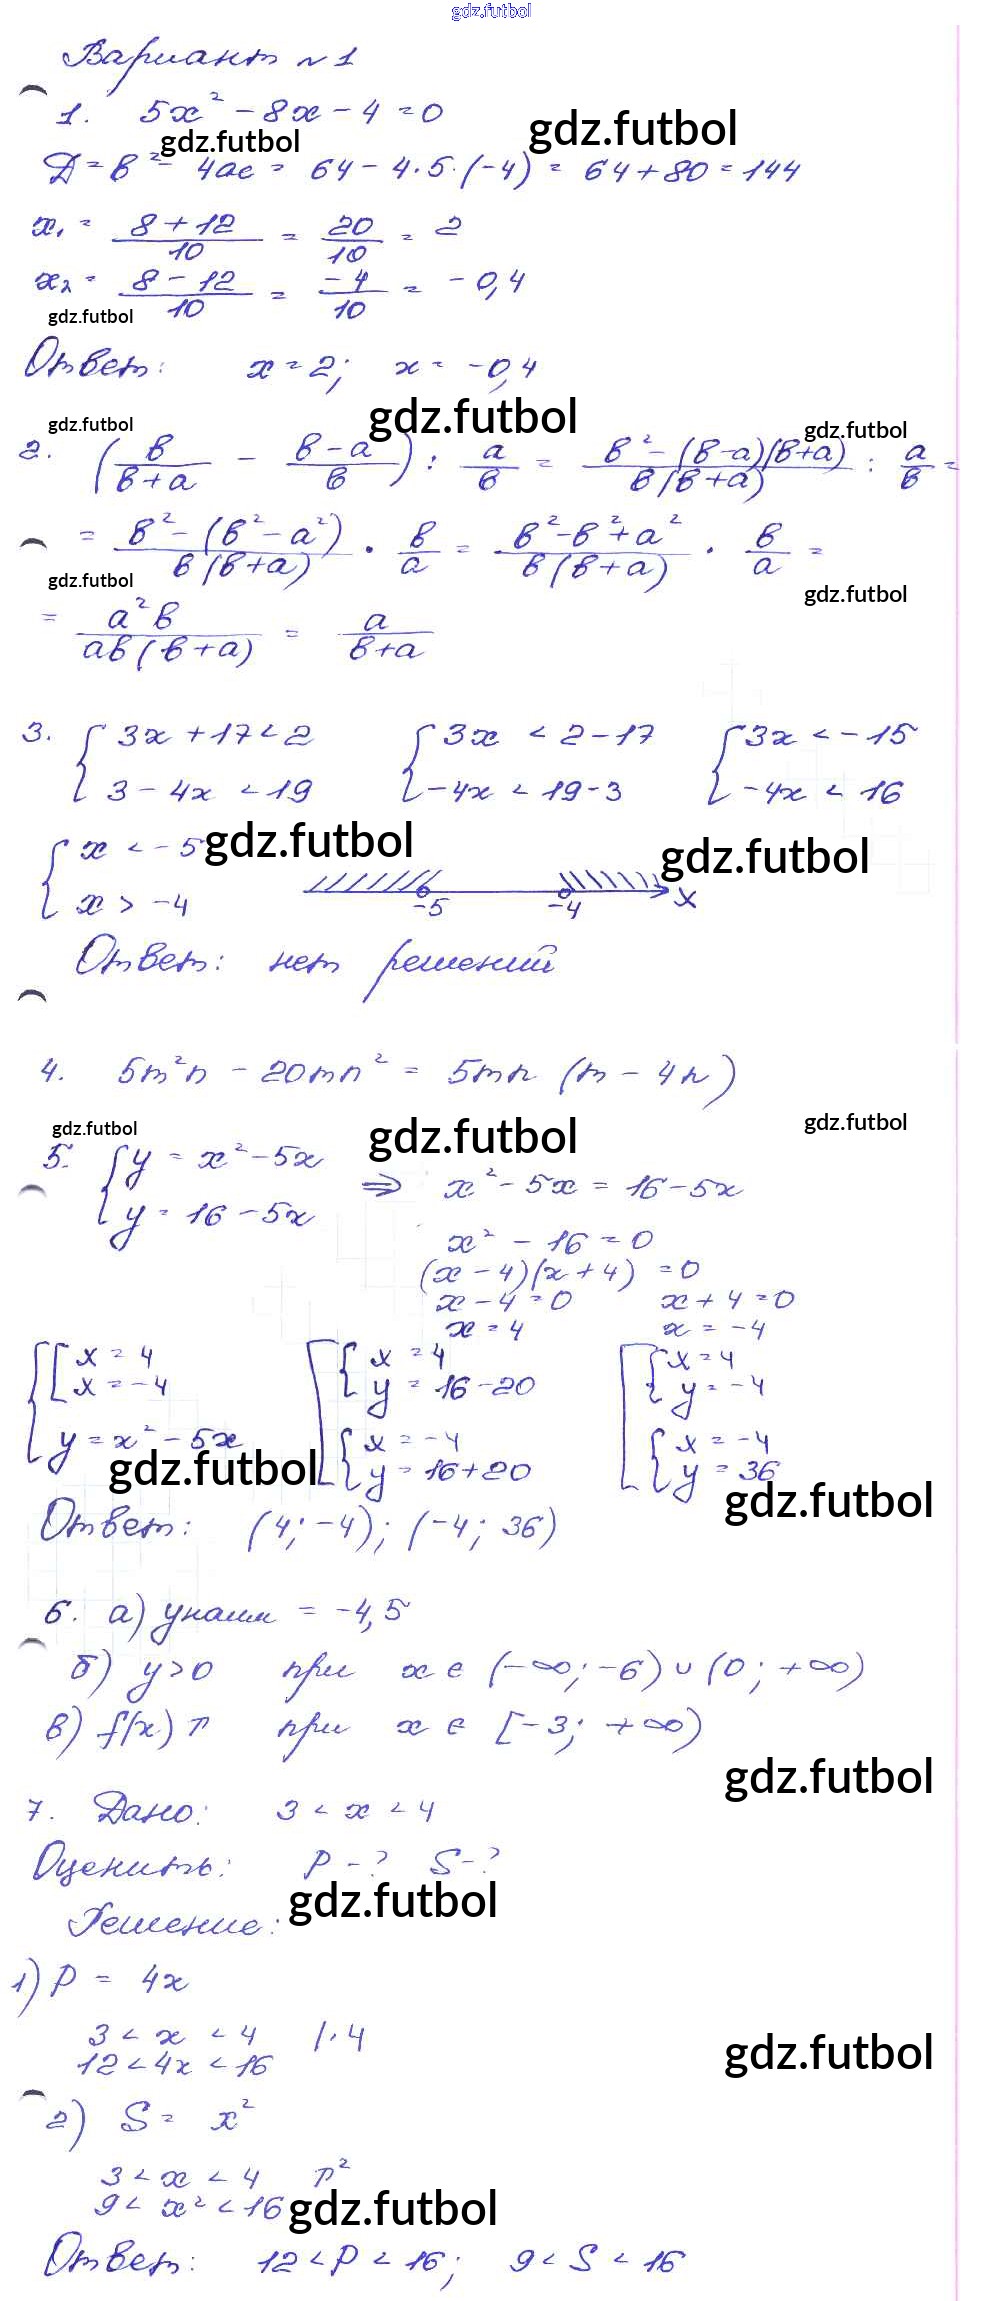 gdz.futbol
Вариант №1
1. 5x² - 8x - 4 = 0
gdz.futbol gdz.futbol
D = b² - 4ac = 64 - 4·5·(-4) = 64 + 80 = 144
x₁ = (8 + 12)/10 = 20/10 = 2
x₂ = (8 - 12)/10 = -4/10 = -0,4
gdz.futbol
Ответ: x = 2; x = -0,4
gdz.futbol gdz.futbol gdz.futbol
2. (b/(b+a) - (b-a)/b) : a/b = (b² - (b-a)(b+a))/(b(b+a)) : a/b =
= (b² - (b² - a²))/(b(b+a)) · b/a = (b² - b² + a²)/(b(b+a)) · b/a =
gdz.futbol gdz.futbol
= a²b/(ab(b+a)) = a/(b+a)
3. { 3x + 17 < 2 { 3x < 2 - 17 { 3x < -15
3 - 4x < 19 -4x < 19 - 3 -4x < 16
{ x < -5 gdz.futbol gdz.futbol
x > -4 -5 -4 x
Ответ: нет решений
4. 5m²n - 20mn² = 5mn (m - 4n)
gdz.futbol gdz.futbol gdz.futbol
5. { y = x² - 5x
y = 16 - 5x ⇒ x² - 5x = 16 - 5x
x² - 16 = 0
(x - 4)(x + 4) = 0
x - 4 = 0 x + 4 = 0
x = 4 x = -4
{ [ x = 4 [ { x = 4 [ { x = 4
x = -4 y = 16 - 20 y = -4
y = x² - 5x { x = -4 { x = -4
y = 16 + 20 y = 36
gdz.futbol gdz.futbol
Ответ: (4; -4); (-4; 36)
6. а) yнаим = -4,5
б) y > 0 при x ∈ (-∞; -6) ∪ (0; +∞)
в) f(x) ↗ при x ∈ [-3; +∞)
gdz.futbol
7. Дано: 3 < x < 4
Оценить: P - ? S - ?
gdz.futbol
Решение:
1) P = 4x
3 < x < 4 |·4
gdz.futbol
12 < 4x < 16
2) S = x²
3 < x < 4 ↑²
9 < x² < 16
gdz.futbol
Ответ: 12 < P < 16; 9 < S < 16